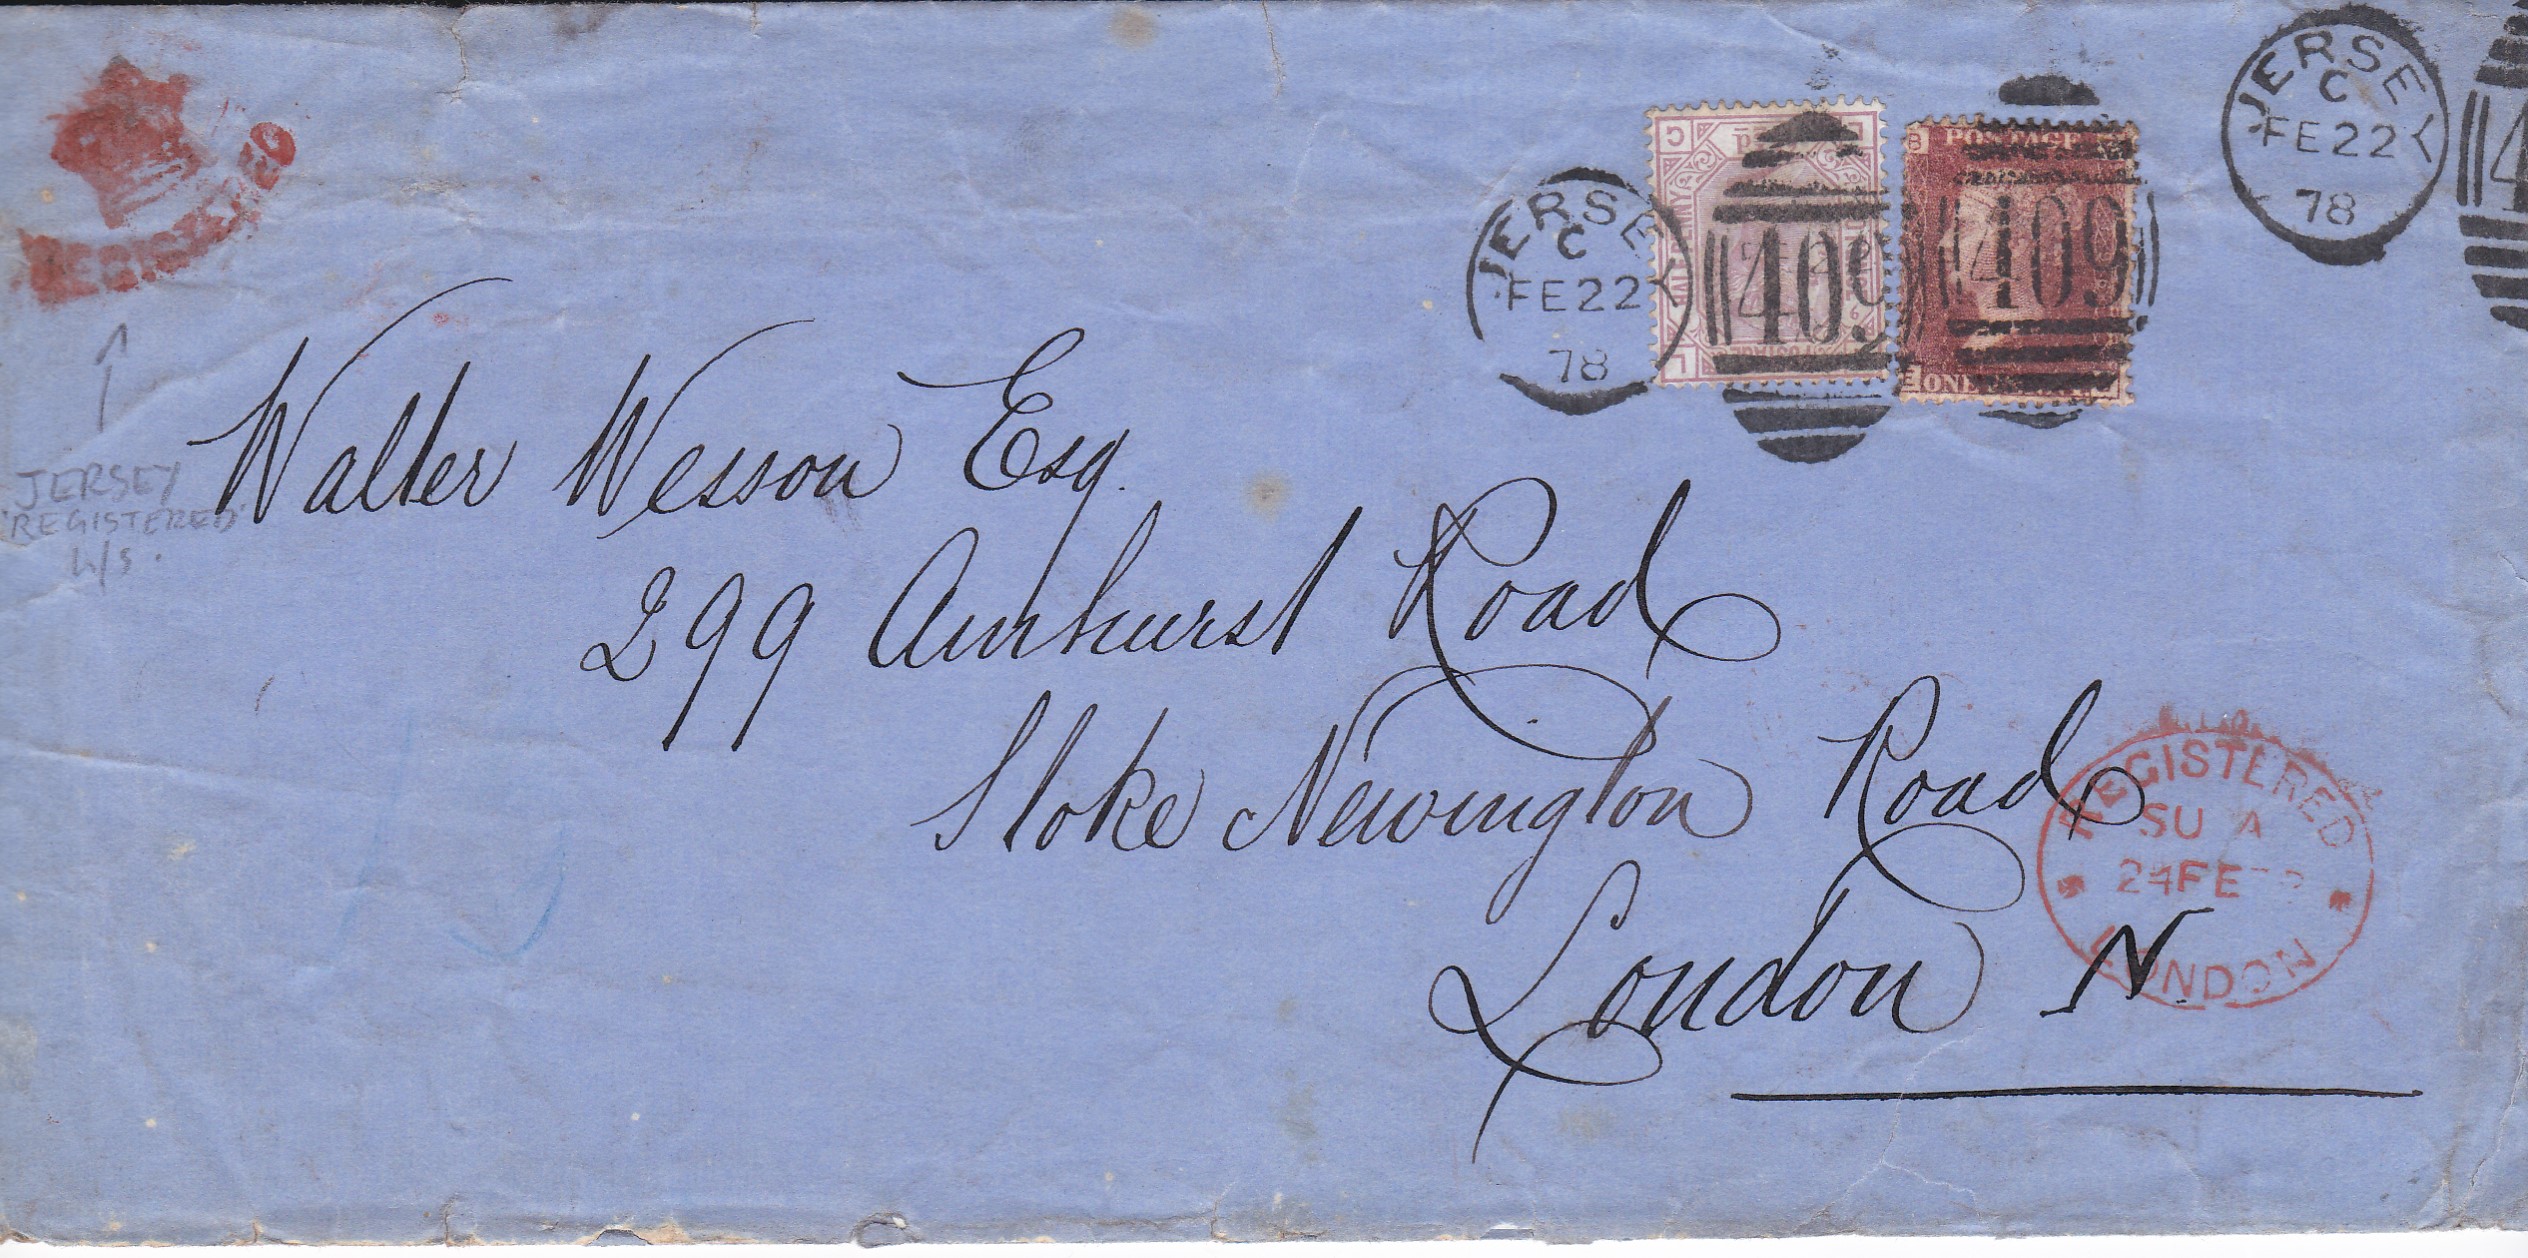 REGISTERED
JERSEY
C
FE 22
78
409
POSTAGE
B
409
E ONE
JERSEY
C
FE 22
78
4
JERSEY
'REGISTERED'
h/s.
Walter Wesson Esq.
299 Amhurst Road
Stoke Newington Road
London N.
REGISTERED
SU A
24 FE
LONDON